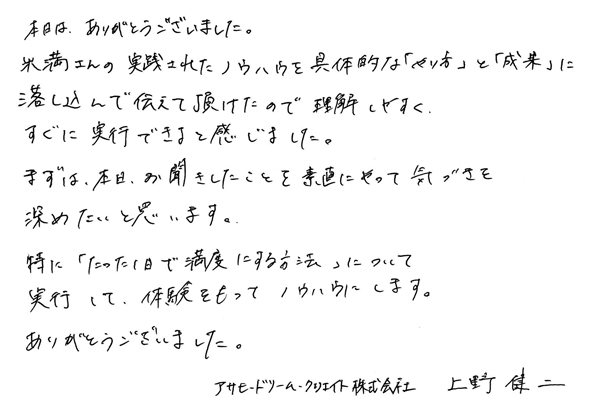 本日は、ありがとうございました。
米満さんの実践されたノウハウを具体的な「やり方」と「成果」に
落し込んで伝えて頂けたので理解しやすく、
すぐに実行できると感じました。
まずは、本日、お聞きしたことを素直にやって気づきを
深めたいと思います。
特に「たった1日で満席にする方法」について
実行して、体験をもってノウハウにします。
ありがとうございました。
アサヒ・ドリーム・クリエイト株式会社 上野健二